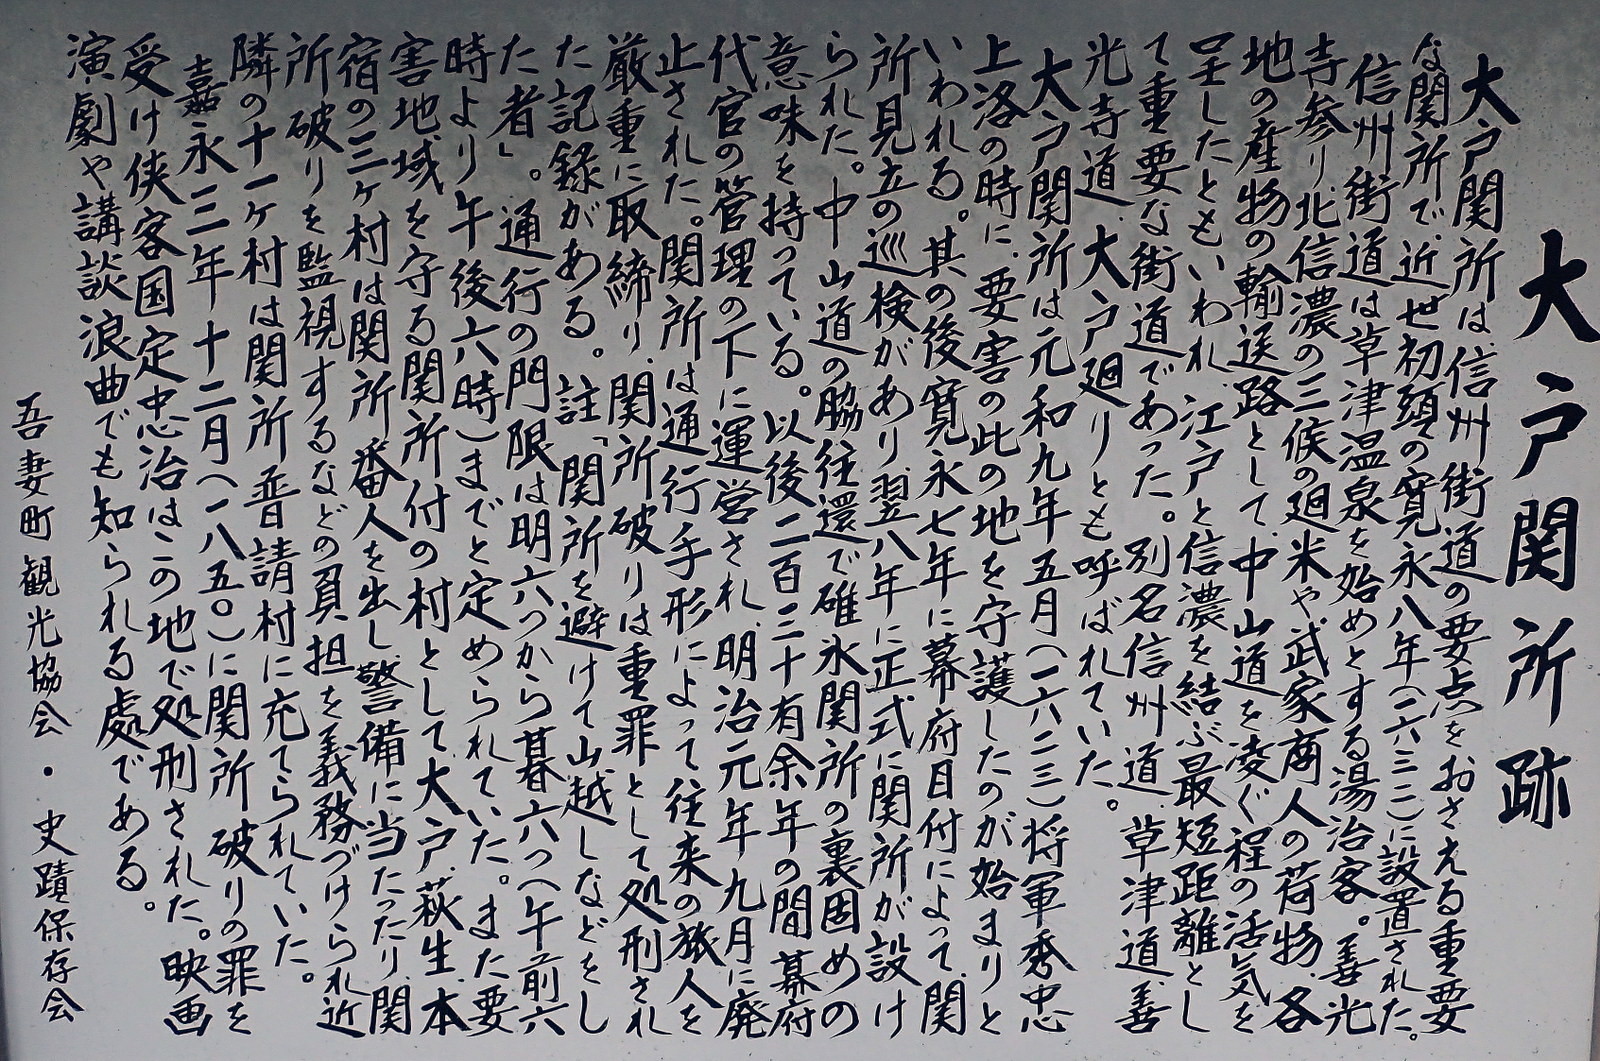 大戸関所跡
大戸関所は、信州街道の要点をおさえる重要
な関所で、近世初頭の寛永八年(一六三一)に設置された。
信州街道は草津温泉を始めとする湯治客。善光
寺参り、北信濃の三候の廻米や武家、商人の荷物、各
地の産物の輸送路として、中山道を凌ぐ程の活気を
呈したともいわれ、江戸と信濃を結ぶ最短距離とし
て重要な街道であった。別名信州道、草津道、善
光寺道、大戸廻りとも呼ばれていた。
大戸関所は元和九年五月(一六二三)将軍秀忠
上洛の時に、要害の此の地を守護したのが始まりと
いわれる。其の後寛永七年に幕府目付によって、関
所見立の巡検があり、翌八年に正式に関所が設け
られた。中山道の脇往還で碓氷関所の裏固めの
意味を持っている。以後二百三十有余年の間、幕府
代官の管理の下に運営され、明治元年九月に廃
止された。関所は通行手形によって往来の旅人を
厳重に取締り、関所破りは重罪として処刑され
た記録がある。註「関所を避けて山越しなどをし
た者」。通行の門限は明六つから暮六つ(午前六
時より午後六時)までと定められていた。また要
害地域を守る関所付の村として大戸、萩生、本
宿の三ヶ村は関所番人を出し、警備に当たったり、関
所破りを監視するなどの負担を義務づけられ、近
隣の十一ヶ村は関所普請村に充てられていた。
嘉永三年十二月(一八五〇)に関所破りの罪を
受け侠客国定忠治はこの地で処刑された。映画
演劇や講談浪曲でも知られる處である。
吾妻町観光協会・史蹟保存会